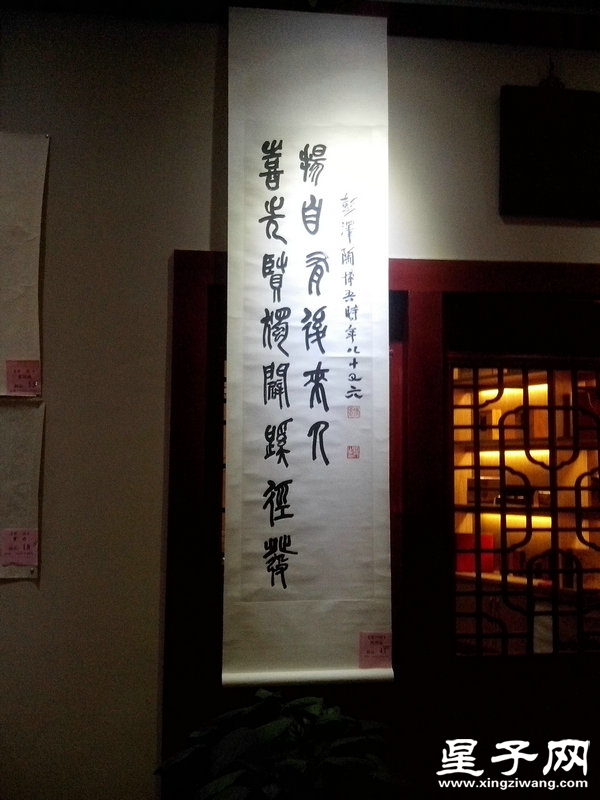 喜先賢獨闢蹊徑發
揚自有後來人
彭澤陶博吾時年八十又六
星子网
www.xingziwang.com